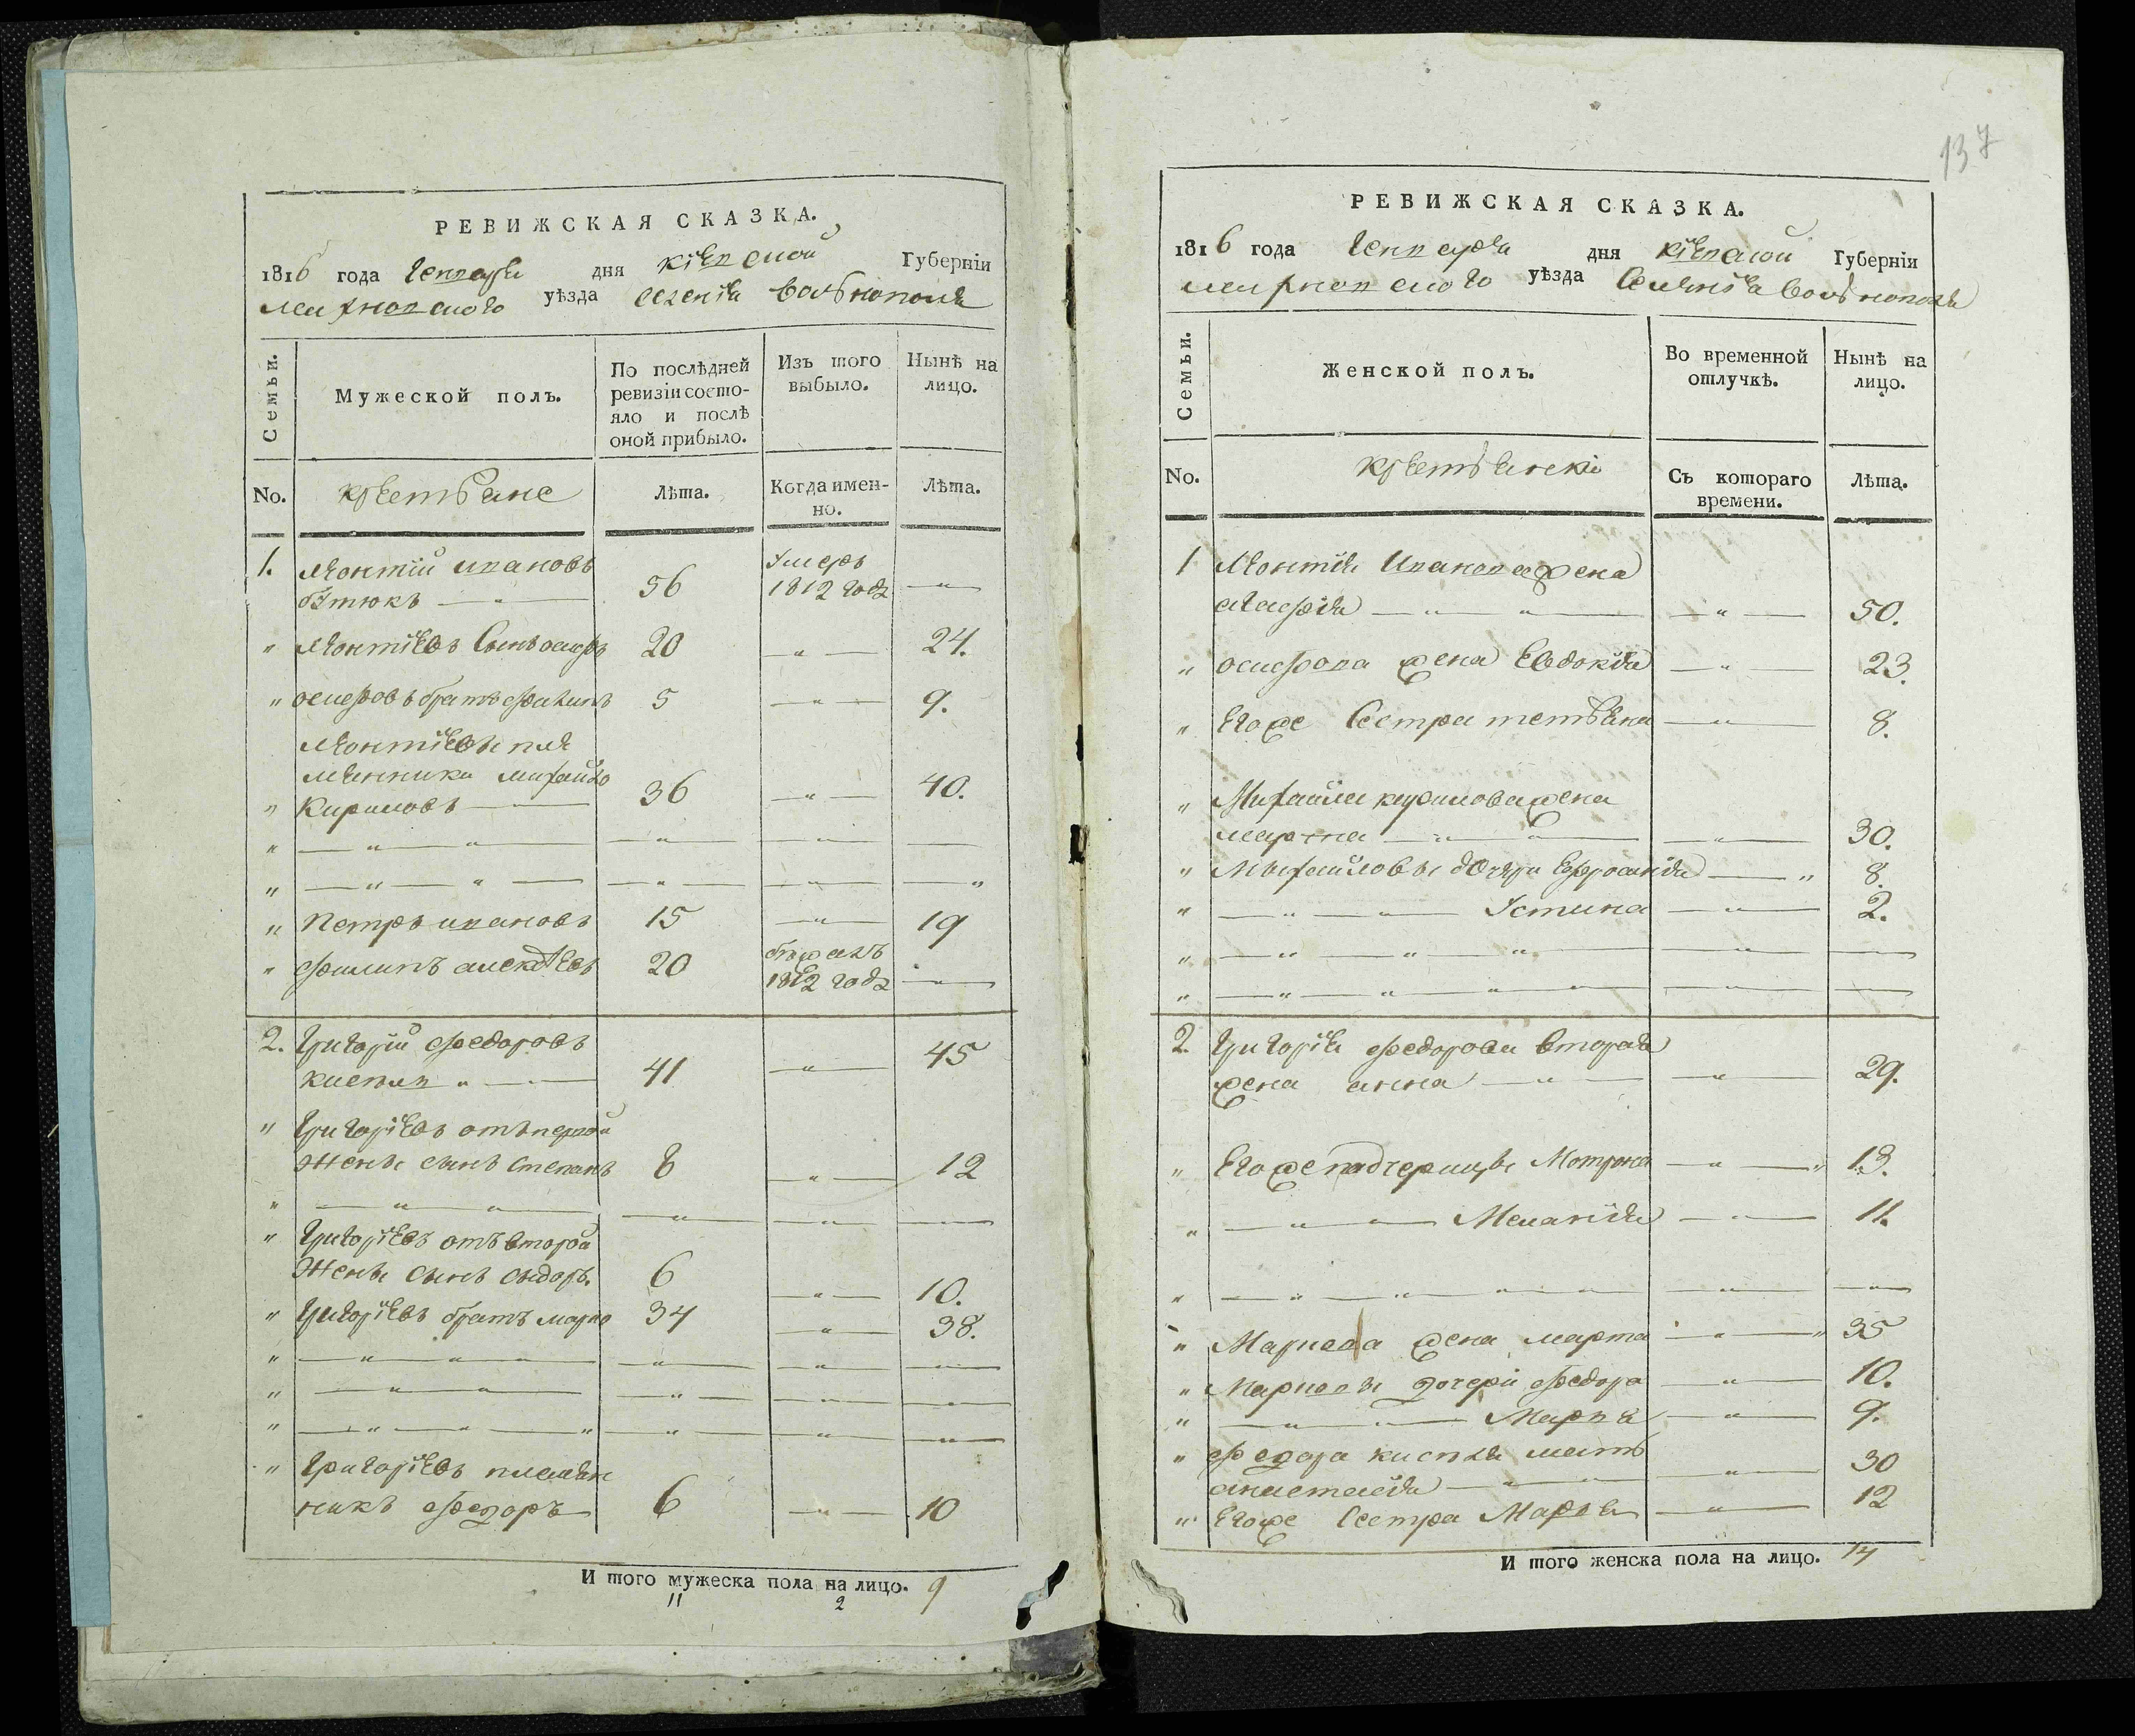 РЕВИЖСКАЯ СКАЗКА.
1816 года Генваря дня Кіевской Губерніи
Махновского уѣзда селенія Вольнополя
Семьи.
Мужеской полъ.
По послѣдней ревизіи состояло и послѣ оной прибыло.
Изъ того выбыло.
Нынѣ на лицо.
No.
крестьяне
Лѣта.
Когда именно.
Лѣта.
1. Леонтій Ивановъ
56 Умеръ 1812 года
" Леонтіевъ Сынъ осипъ 20 24.
" осиповъ братъ 5 9.
Леонтіевы пле
мянники Михайло
" Кириловъ 36 40.
" Петръ ивановъ 15 19
" филипъ алексѣевъ 20 бѣжалъ 1812 года
2. Григорій федоровъ
41 45
" Григоріевъ отъ первой
жены сынъ степанъ 8 12
" Григоріевъ отъ второй
жены сынъ сидоръ. 6 10.
" Григоріевъ братъ марко 34 38.
" Григоріевъ племян
никъ федоръ 6 10
И того мужеска пола на лицо. 9
11 2
137
РЕВИЖСКАЯ СКАЗКА.
1816 года Генваря дня Кіевской Губерніи
Махновского уѣзда Селенія Вольнополя
Семьи.
Женской полъ.
Во временной отлучкѣ.
Нынѣ на лицо.
No.
крестьянскій
Съ котораго времени.
Лѣта.
1 Леонтія Иванова жена
50.
" осипова жена Евдокія 23.
" Егоже Сестра татьяна 8.
" Михайла кирилова жена
30.
" Михайловы дочери Ефросинія 8.
" Устина 2.
2. Григорія федорова вторая
жена анна 29.
" Егоже падчерицы Мотрона 13.
" Меланія 11.
" Маркова жена марта 35
" Марковы дочери федора 10.
" 9.
" федора мать
анастасія 30
" Егоже Сестра Марья 12
И того женска пола на лицо. 14